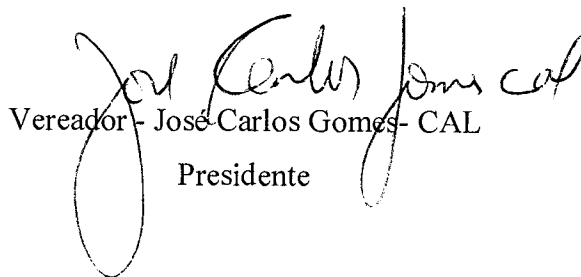 José Carlos Gomes cal
Vereador - José Carlos Gomes- CAL
Presidente